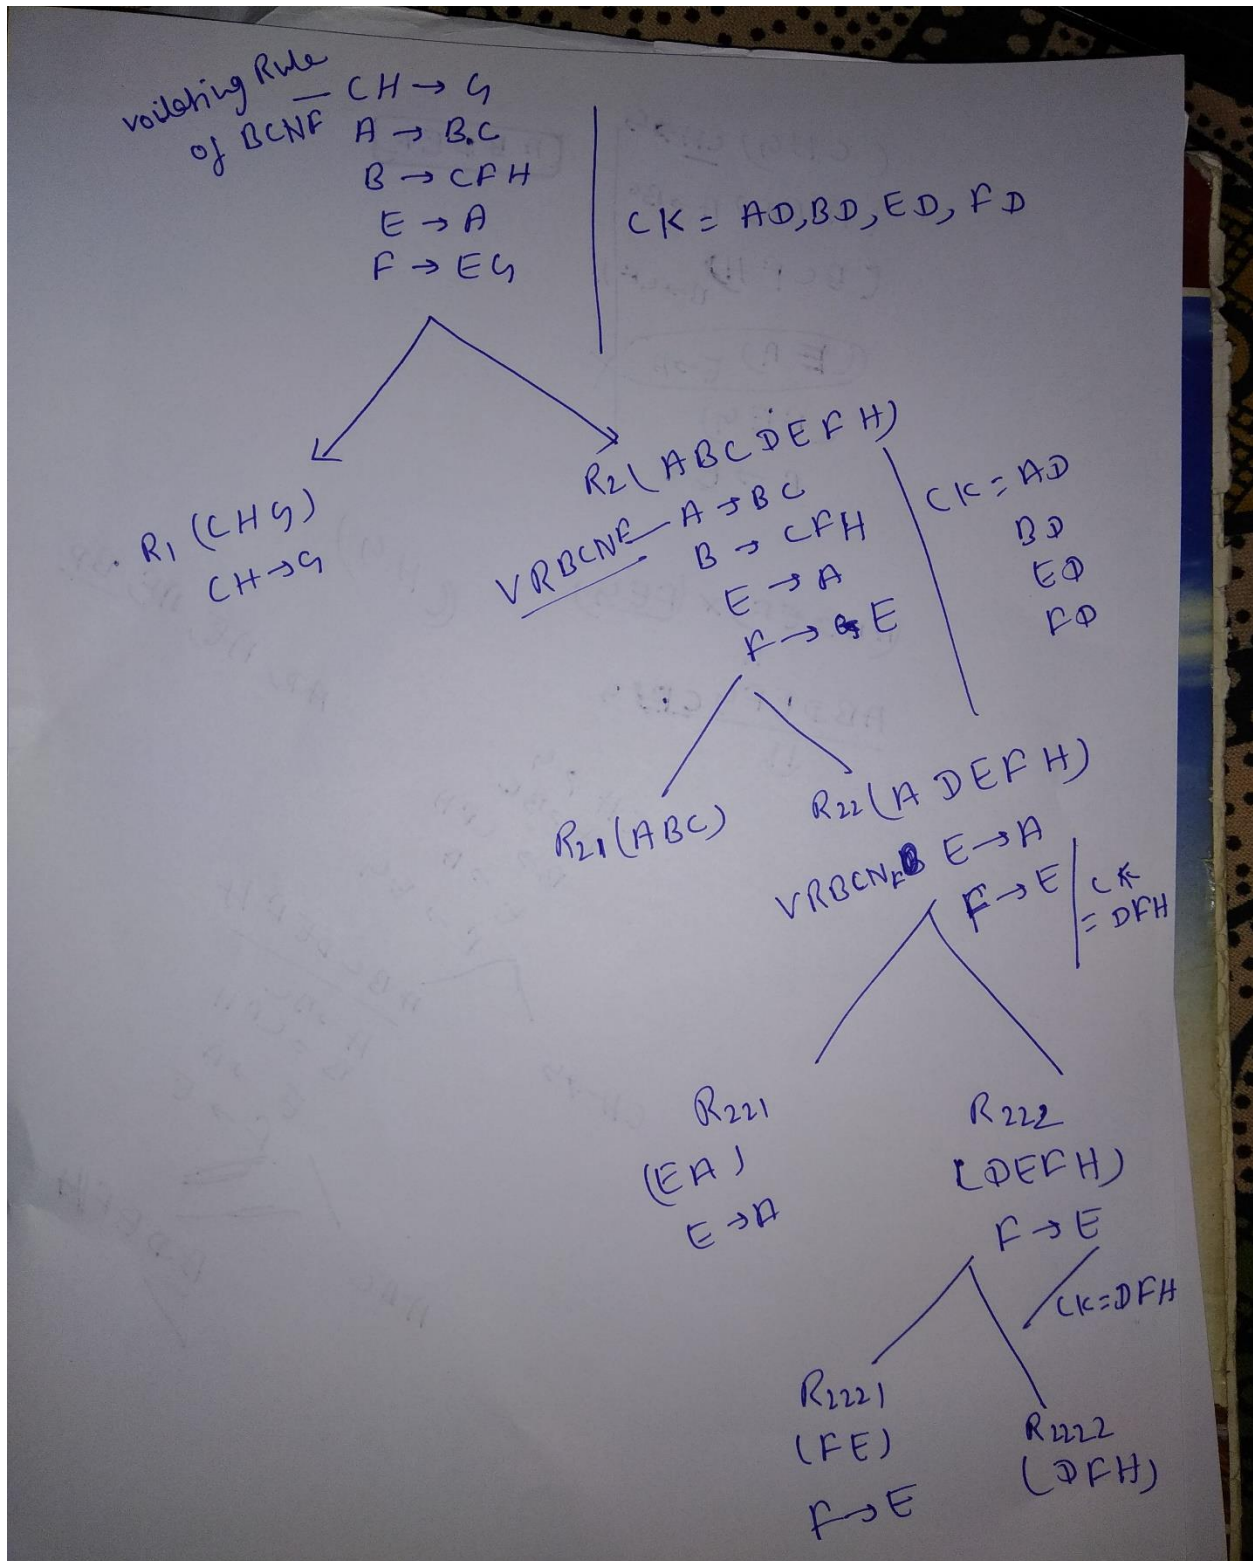 voilating Rule
of BCNF — CH → G
A → B.C
B → CFH
E → A
F → EG
CK = AD, BD, ED, FD
R1 (CHG)
CH → G
R2 (ABCDEFH)
VRBCNF — A → BC
B → CFH
E → A
F → E
CK = AD
BD
ED
FD
R21 (ABC)
R22 (ADEFH)
VRBCNF E → A
F → E
CK
= DFH
R221
(EA)
E → A
R222
(DEFH)
F → E
CK = DFH
R2221
(FE)
F → E
R2222
(DFH)